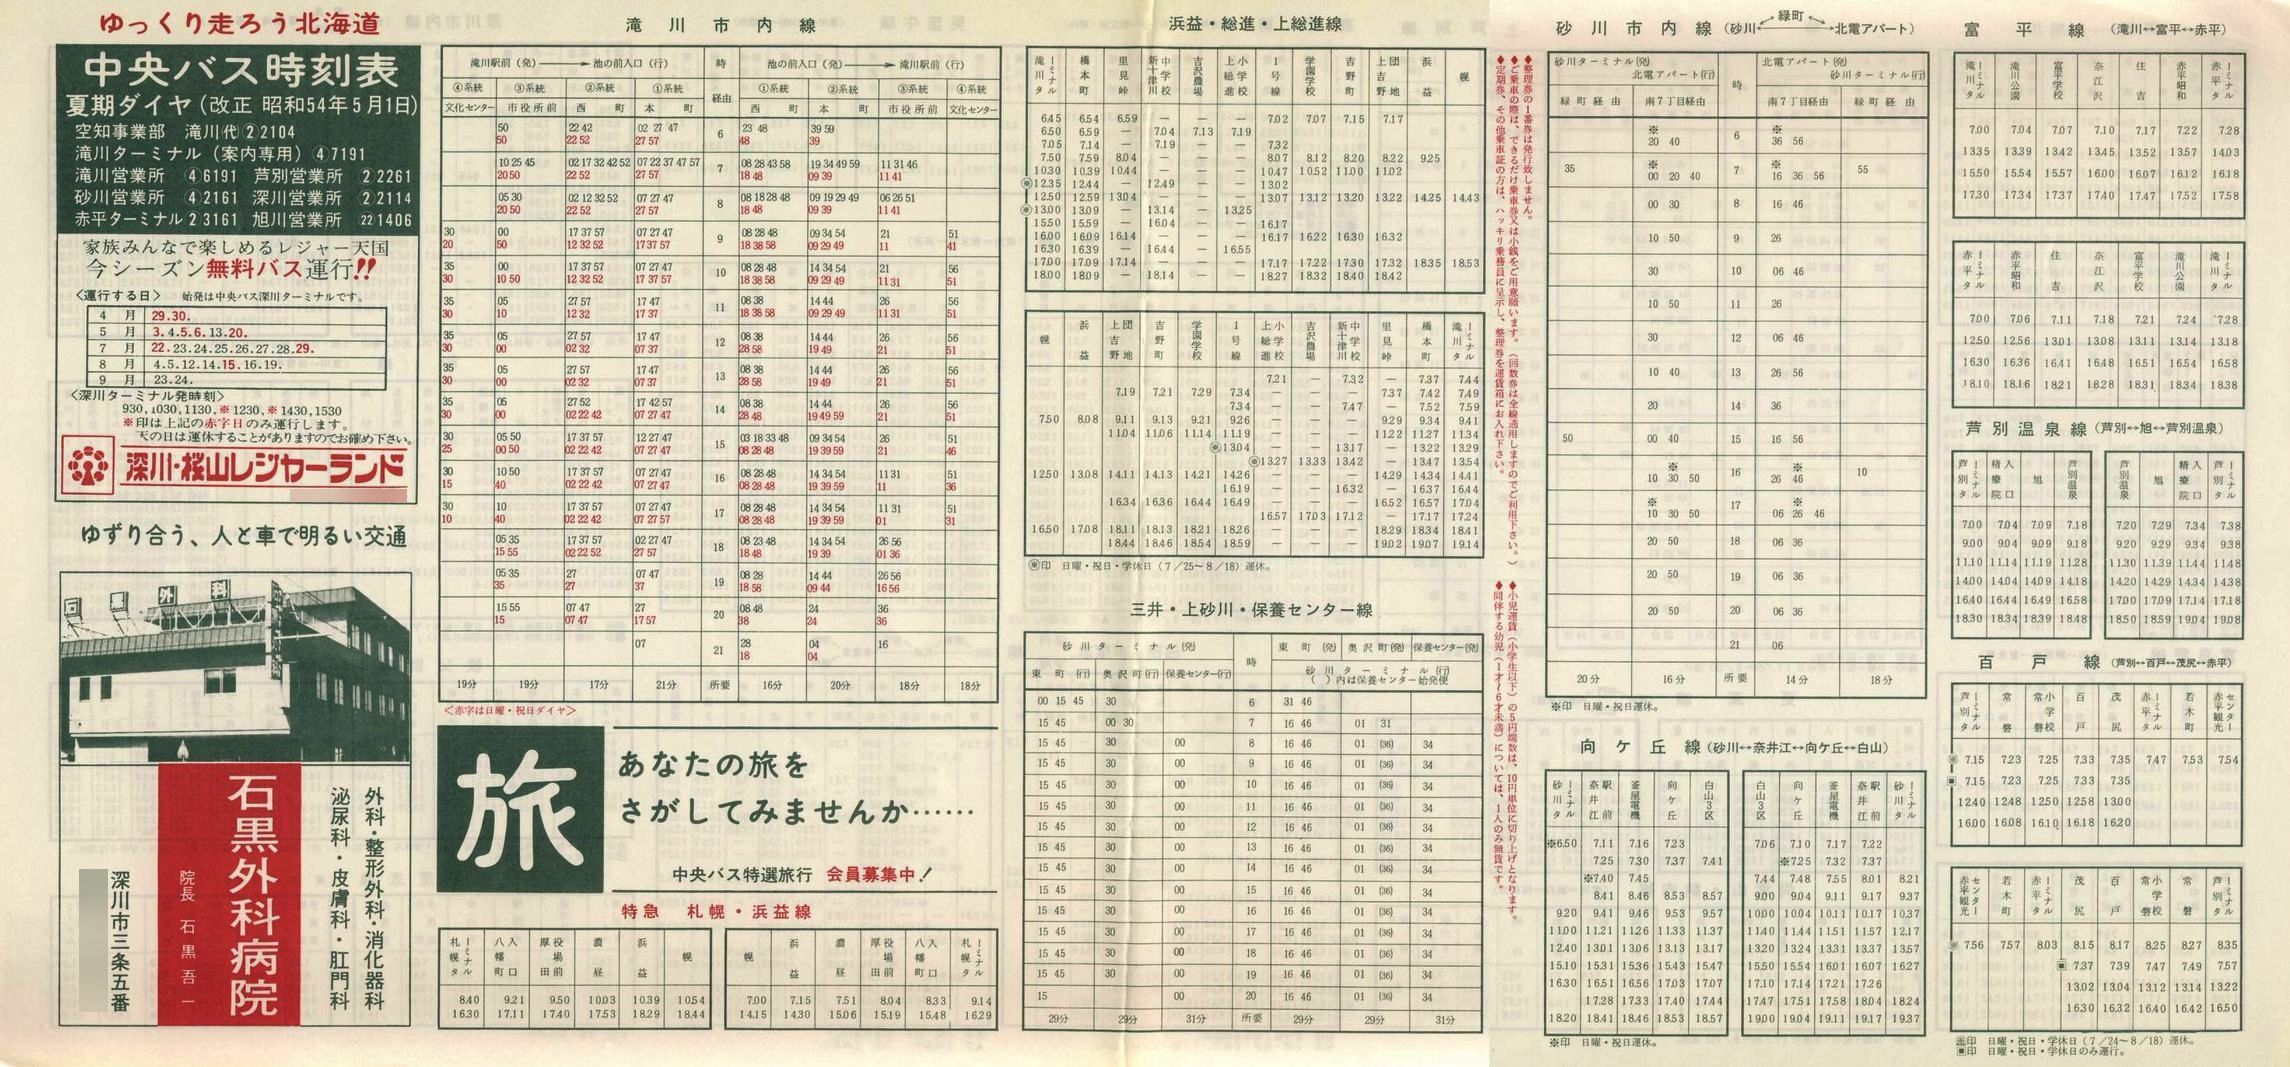 ゆっくり走ろう北海道
中央バス時刻表
夏期ダイヤ(改正 昭和54年5月1日)
空知事業部 滝川代②2104
滝川ターミナル(案内専用)④7191
滝川営業所 ④6191 芦別営業所 ②2261
砂川営業所 ④2161 深川営業所 ②2114
赤平ターミナル23161 旭川営業所 ㉒1406
家族みんなで楽しめるレジャー天国
今シーズン無料バス運行!!
<運行する日> 始発は中央バス深川ターミナルです。
4 月 29.30.
5 月 3.4.5.6.13.20.
7 月 22.23.24.25.26.27.28.29.
8 月 4.5.12.14.15.16.19.
9 月 23.24.
<深川ターミナル発時刻>
930,1030,1130,※1230,※1430,1530
※印は上記の赤字日のみ運行します。
天の日は運休することがありますのでお確め下さい。
深川・桜山レジャーランド
ゆずり合う、人と車で明るい交通
石黒外科
外科・整形外科・消化器科
泌尿科・皮膚科・肛門科
石黒外科病院
院長 石黒吾一
深川市三条五番
滝川市内線
滝川駅前(発)→池の前入口(行) 時 池の前入口(発)→滝川駅前(行)
④系統 ③系統 ②系統 ①系統 経由 ①系統 ②系統 ③系統 ④系統
文化センター 市役所前 西町 本町 西町 本町 市役所前 文化センター
50 22 42 02 27 47 6 23 48 39 59
50 22 52 27 57 48 39
10 25 45 02 17 32 42 52 07 22 37 47 57 7 08 28 43 58 19 34 49 59 11 31 46
20 50 22 52 27 57 18 48 09 39 11 41
05 30 02 12 32 52 07 27 47 8 08 18 28 48 09 19 29 49 06 26 51
20 50 22 52 27 57 18 48 09 39 11 41
30 00 17 37 57 07 27 47 9 08 28 48 09 34 54 21 51
20 50 12 32 52 17 37 57 18 38 58 09 29 49 11 41
35 00 17 37 57 07 27 47 10 08 28 48 14 34 54 21 56
30 10 50 12 32 52 17 37 57 18 38 58 09 29 49 11 31 51
35 05 27 57 17 47 11 08 38 14 44 26 56
30 10 12 32 17 37 18 38 58 09 29 49 11 31 51
35 05 27 57 17 47 12 08 38 14 44 26 56
30 00 02 32 07 37 28 58 19 49 21 51
35 05 27 57 17 47 13 08 38 14 44 26 56
30 00 02 32 07 37 28 58 19 49 21 51
35 05 27 52 17 42 57 14 08 38 14 44 26 56
30 00 02 22 42 07 27 47 28 48 19 49 59 21 51
30 05 50 17 37 57 12 27 47 15 03 18 33 48 09 34 54 26 51
25 00 50 02 22 42 07 27 47 08 28 48 19 39 59 21 46
30 10 50 17 37 57 07 27 47 16 08 28 48 14 34 54 11 31 51
15 40 02 22 42 07 27 47 08 28 48 19 39 59 11 36
30 10 17 37 57 07 27 47 17 08 28 48 14 34 54 11 31 51
10 40 02 22 42 07 27 57 08 28 48 19 39 59 01 31
05 35 17 37 57 02 27 47 18 08 23 48 14 34 54 26 56
15 55 02 22 52 27 57 18 48 19 39 01 36
05 35 27 07 47 19 08 28 14 44 26 56
35 27 37 18 58 09 44 16 56
15 55 07 47 27 20 08 48 24 36
15 07 47 17 57 38 24 36
07 21 28 04 16
18 04
19分 19分 17分 21分 所要 16分 20分 18分 18分
<赤字は日曜・祝日ダイヤ>
旅
あなたの旅を
さがしてみませんか……
中央バス特選旅行 会員募集中!
特急 札幌・浜益線
札幌ターミナル 八幡町入口 厚田役場前 濃昼 浜益 幌
8.40 9.21 9.50 10.03 10.39 10.54
16.30 17.11 17.40 17.53 18.29 18.44
幌 浜益 濃昼 厚田役場前 八幡町入口 札幌ターミナル
7.00 7.15 7.51 8.04 8.33 9.14
14.15 14.30 15.06 15.19 15.48 16.29
浜益・総進・上総進線
滝川ターミナル 橋本町 里見峠 新十津川中学校 吉沢農場 上総進小学校 1号線 学園学校 吉野町 上吉野団地 浜益 幌
6.45 6.54 6.59 — — — 7.02 7.07 7.15 7.17
6.50 6.59 — 7.04 7.13 7.19
7.05 7.14 — 7.19 — — 7.32
7.50 7.59 8.04 — — — 8.07 8.12 8.20 8.22 9.25
10.30 10.39 10.44 — — — 10.47 10.52 11.00 11.02
※12.35 12.44 — 12.49 — — 13.02
12.50 12.59 13.04 — — — 13.07 13.12 13.20 13.22 14.25 14.43
※13.00 13.09 — 13.14 — 13.25
15.50 15.59 — 16.04 — — 16.17
16.00 16.09 16.14 — — — 16.17 16.22 16.30 16.32
16.30 16.39 — 16.44 — 16.55
17.00 17.09 17.14 — — — 17.17 17.22 17.30 17.32 18.35 18.53
18.00 18.09 — 18.14 — — 18.27 18.32 18.40 18.42
幌 浜益 上吉野団地 吉野町 学園学校 1号線 上総進小学校 吉沢農場 新十津川中学校 里見峠 橋本町 滝川ターミナル
7.21 — 7.32 — 7.37 7.44
7.19 7.21 7.29 7.34 — — — 7.37 7.42 7.49
7.34 — — 7.47 — 7.52 7.59
7.50 8.08 9.11 9.13 9.21 9.26 — — — 9.29 9.34 9.41
11.04 11.06 11.14 11.19 — — — 11.22 11.27 11.34
※13.04 — — 13.17 — 13.22 13.29
※13.27 13.33 13.42 — 13.47 13.54
12.50 13.08 14.11 14.13 14.21 14.26 — — — 14.29 14.34 14.41
16.19 — — 16.32 — 16.37 16.44
16.34 16.36 16.44 16.49 — — — 16.52 16.57 17.04
16.57 17.03 17.12 — 17.17 17.24
16.50 17.08 18.11 18.13 18.21 18.26 — — — 18.29 18.34 18.41
18.44 18.46 18.54 18.59 — — — 19.02 19.07 19.14
※印 日曜・祝日・学休日(7/25~8/18)運休。
三井・上砂川・保養センター線
砂川ターミナル(発) 時 東町(発) 奥沢町(発) 保養センター(発)
東町(行) 奥沢町(行) 保養センター(行) 砂川ターミナル(行)
( )内は保養センター始発便
00 15 45 30 6 31 46
15 45 00 30 7 16 46 01 31
15 45 30 00 8 16 46 01 (36) 34
15 45 30 00 9 16 46 01 (36) 34
15 45 30 00 10 16 46 01 (36) 34
15 45 30 00 11 16 46 01 (36) 34
15 45 30 00 12 16 46 01 (36) 34
15 45 30 00 13 16 46 01 (36) 34
15 45 30 00 14 16 46 01 (36) 34
15 45 30 00 15 16 46 01 (36) 34
15 45 30 00 16 16 46 01 (36) 34
15 45 30 00 17 16 46 01 (36) 34
15 45 30 00 18 16 46 01 (36) 34
15 45 30 00 19 16 46 01 (36) 34
15 00 20 16 46 01 (36) 34
29分 29分 31分 所要 29分 29分 31分
◆整理券の1番券は発行致しません。
◆ご乗車の際は、できるだけ乗車券又は小銭をご用意願います。(回数券は全線通用しますのでご利用下さい。)
◆定期券、その他乗車証の方は、ハッキリ乗務員に呈示し、整理券を運賃箱にお入れ下さい。
◆小児運賃(小学生以下)の5円端数は、10円単位に切り上げとなります。
◆同伴する幼児(1才~6才未満)については、1人のみ無賃です。
砂川市内線(砂川←緑町→北電アパート)
砂川ターミナル(発) 北電アパート(行) 時 北電アパート(発) 砂川ターミナル(行)
緑町経由 南7丁目経由 南7丁目経由 緑町経由
※20 40 6 ※36 56
35 ※00 20 40 7 ※16 36 56 55
00 30 8 16 46
10 50 9 26
30 10 06 46
10 50 11 26
30 12 06 46
10 40 13 26 56
20 14 36
50 00 40 15 16 56
※10 30 50 16 ※26 46 10
※10 30 50 17 ※06 26 46
20 50 18 06 36
20 50 19 06 36
20 50 20 06 36
21 06
20分 16分 所要 14分 18分
※印 日曜・祝日運休。
向ケ丘線(砂川↔奈井江↔向ケ丘↔白山)
砂川ターミナル 奈井江駅前 釜屋電機 向ケ丘 白山3区
※6.50 7.11 7.16 7.23
7.25 7.30 7.37 7.41
※7.40 7.45
8.41 8.46 8.53 8.57
9.20 9.41 9.46 9.53 9.57
11.00 11.21 11.26 11.33 11.37
12.40 13.01 13.06 13.13 13.17
15.10 15.31 15.36 15.43 15.47
16.30 16.51 16.56 17.03 17.07
17.28 17.33 17.40 17.44
18.20 18.41 18.46 18.53 18.57
白山3区 向ケ丘 釜屋電機 奈井江駅前 砂川ターミナル
7.06 7.10 7.17 7.22
※7.25 7.32 7.37
7.44 7.48 7.55 8.01 8.21
9.00 9.04 9.11 9.17 9.37
10.00 10.04 10.11 10.17 10.37
11.40 11.44 11.51 11.57 12.17
13.20 13.24 13.31 13.37 13.57
15.50 15.54 16.01 16.07 16.27
17.10 17.14 17.21 17.26
17.47 17.51 17.58 18.04 18.24
19.00 19.04 19.11 19.17 19.37
※印 日曜・祝日運休。
富平線(滝川↔富平↔赤平)
滝川ターミナル 滝川公園 富平学校 奈江沢 住吉 赤平昭和 赤平ターミナル
7.00 7.04 7.07 7.10 7.17 7.22 7.28
13.35 13.39 13.42 13.45 13.52 13.57 14.03
15.50 15.54 15.57 16.00 16.07 16.12 16.18
17.30 17.34 17.37 17.40 17.47 17.52 17.58
赤平ターミナル 赤平昭和 住吉 奈江沢 富平学校 滝川公園 滝川ターミナル
7.00 7.06 7.11 7.18 7.21 7.24 7.28
12.50 12.56 13.01 13.08 13.11 13.14 13.18
16.30 16.36 16.41 16.48 16.51 16.54 16.58
18.10 18.16 18.21 18.28 18.31 18.34 18.38
芦別温泉線(芦別↔旭↔芦別温泉)
芦別ターミナル 精療院入口 旭 芦別温泉
7.00 7.04 7.09 7.18
9.00 9.04 9.09 9.18
11.10 11.14 11.19 11.28
14.00 14.04 14.09 14.18
16.40 16.44 16.49 16.58
18.30 18.34 18.39 18.48
芦別温泉 旭 精療院入口 芦別ターミナル
7.20 7.29 7.34 7.38
9.20 9.29 9.34 9.38
11.30 11.39 11.44 11.48
14.20 14.29 14.34 14.38
17.00 17.09 17.14 17.18
18.50 18.59 19.04 19.08
百戸線(芦別↔百戸↔茂尻↔赤平)
芦別ターミナル 常磐 常磐小学校 百戸 茂尻 赤平ターミナル 若木町 赤平観光センター
※7.15 7.23 7.25 7.33 7.35 7.47 7.53 7.54
■7.15 7.23 7.25 7.33 7.35
12.40 12.48 12.50 12.58 13.00
16.00 16.08 16.10 16.18 16.20
赤平観光センター 若木町 赤平ターミナル 茂尻 百戸 常磐小学校 常磐 芦別ターミナル
※7.56 7.57 8.03 8.15 8.17 8.25 8.27 8.35
■7.37 7.39 7.47 7.49 7.57
13.02 13.04 13.12 13.14 13.22
16.30 16.32 16.40 16.42 16.50
※印 日曜・祝日・学休日(7/24~8/18)運休。
■印 日曜・祝日・学休日のみ運行。